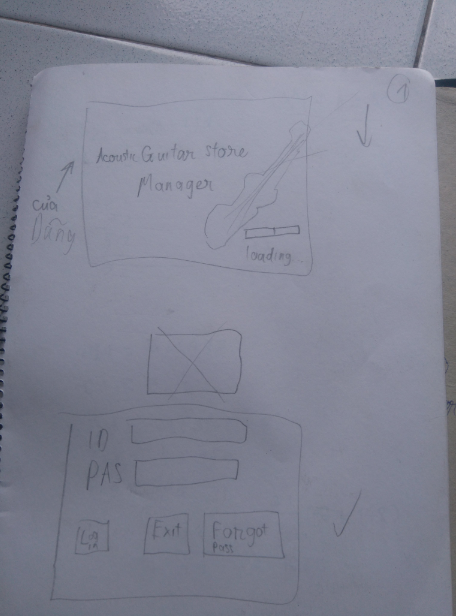 1
Acoustic Guitar Store
Manager
của
Dũng
loading
ID
PAS
Log
in
Exit
Forgot
Pass